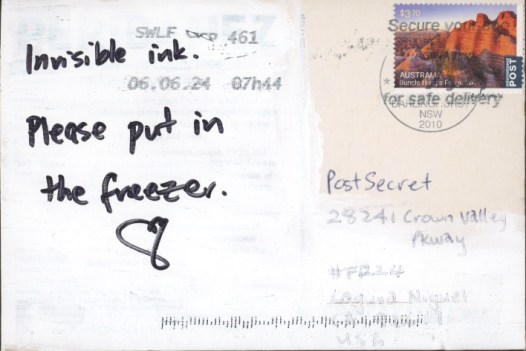 SWLF DKP 461
06.06.24 07h44
Invisible ink.
Please put in
the freezer.
$3.10
Secure your
AUSTRALIA
POST
for safe delivery
NSW
2010
PostSecret
28241 Crown Valley
Pkway
#F224
Laguna Niguel
USA